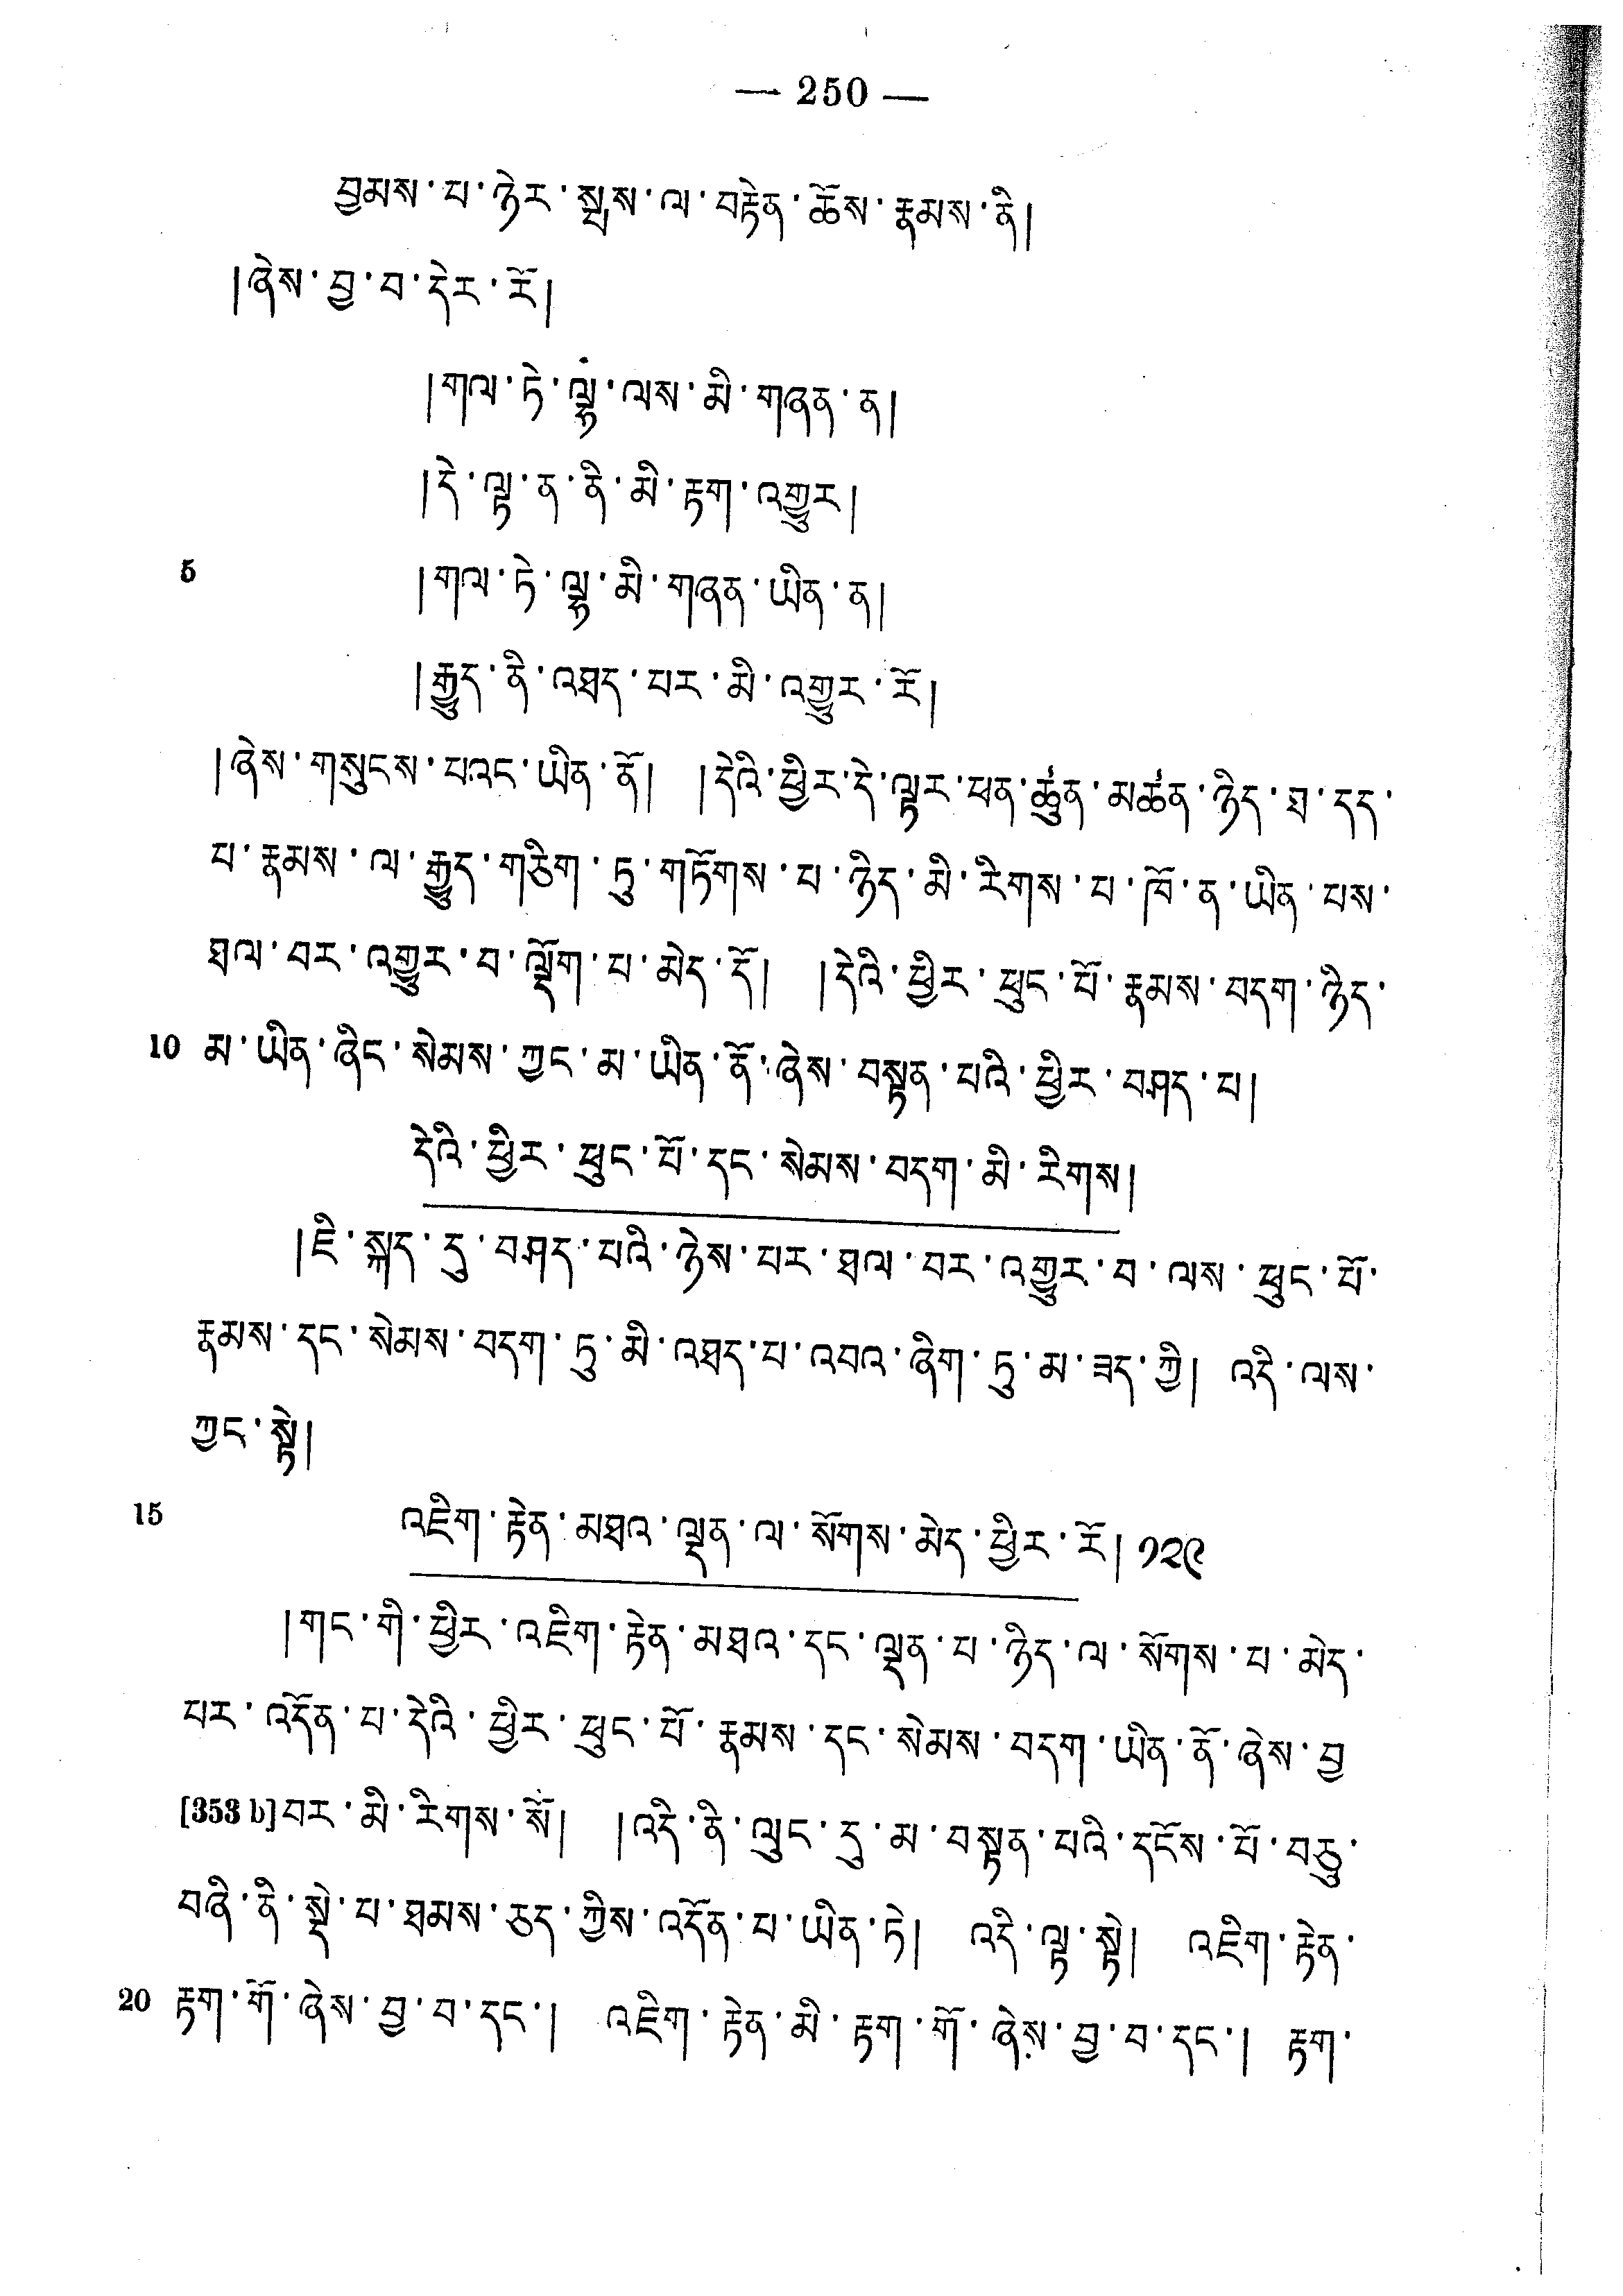 — 250 —
བྱམས་པ་ཉེར་སྤས་ལ་བརྟེན་ཆོས་རྣམས་ནི།
།ཞེས་བྱ་བ་དེར་རོ།
།གལ་ཏེ་ལྷ་ལས་མི་གཞན་ན།
།དེ་ལྟ་ན་ནི་མི་རྟག་འགྱུར།
5 །གལ་ཏེ་ལྷ་མི་གཞན་ཡིན་ན།
།རྒྱུད་ནི་འཐད་པར་མི་འགྱུར་རོ།
།ཞེས་གསུངས་པའང་ཡིན་ནོ། །དེའི་ཕྱིར་དེ་ལྟར་ཕན་ཚུན་མཚན་ཉིད་ཐ་དད་
པ་རྣམས་ལ་རྒྱུད་གཅིག་ཏུ་གཏོགས་པ་ཉིད་མི་རིགས་པ་ཁོ་ན་ཡིན་པས་
ཐལ་བར་འགྱུར་བ་ལྡོག་པ་མེད་དོ། །དེའི་ཕྱིར་ཕུང་པོ་རྣམས་བདག་ཉིད་
10 མ་ཡིན་ཞིང་སེམས་ཀྱང་མ་ཡིན་ནོ་ཞེས་བསྟན་པའི་ཕྱིར་བཤད་པ།
དེའི་ཕྱིར་ཕུང་པོ་དང་སེམས་བདག་མི་རིགས།
།ཇི་སྐད་དུ་བཤད་པའི་ཉེས་པར་ཐལ་བར་འགྱུར་བ་ལས་ཕུང་པོ་
རྣམས་དང་སེམས་བདག་ཏུ་མི་འཐད་པ་འབའ་ཞིག་ཏུ་མ་ཟད་ཀྱི། འདི་ལས་
ཀྱང་སྟེ།
15 འཇིག་རྟེན་མཐའ་ལྡན་ལ་སོགས་མེད་ཕྱིར་རོ། ༡༢༩
།གང་གི་ཕྱིར་འཇིག་རྟེན་མཐའ་དང་ལྡན་པ་ཉིད་ལ་སོགས་པ་མེད་
པར་འདོན་པ་དེའི་ཕྱིར་ཕུང་པོ་རྣམས་དང་སེམས་བདག་ཡིན་ནོ་ཞེས་བྱ
[353 b]བར་མི་རིགས་སོ། །འདི་ནི་ལུང་དུ་མ་བསྟན་པའི་དངོས་པོ་བཅུ་
བཞི་ནི་སྡེ་པ་ཐམས་ཅད་ཀྱིས་འདོན་པ་ཡིན་ཏེ། འདི་ལྟ་སྟེ། འཇིག་རྟེན་
20 རྟག་གོ་ཞེས་བྱ་བ་དང་། འཇིག་རྟེན་མི་རྟག་གོ་ཞེས་བྱ་བ་དང་། རྟག་